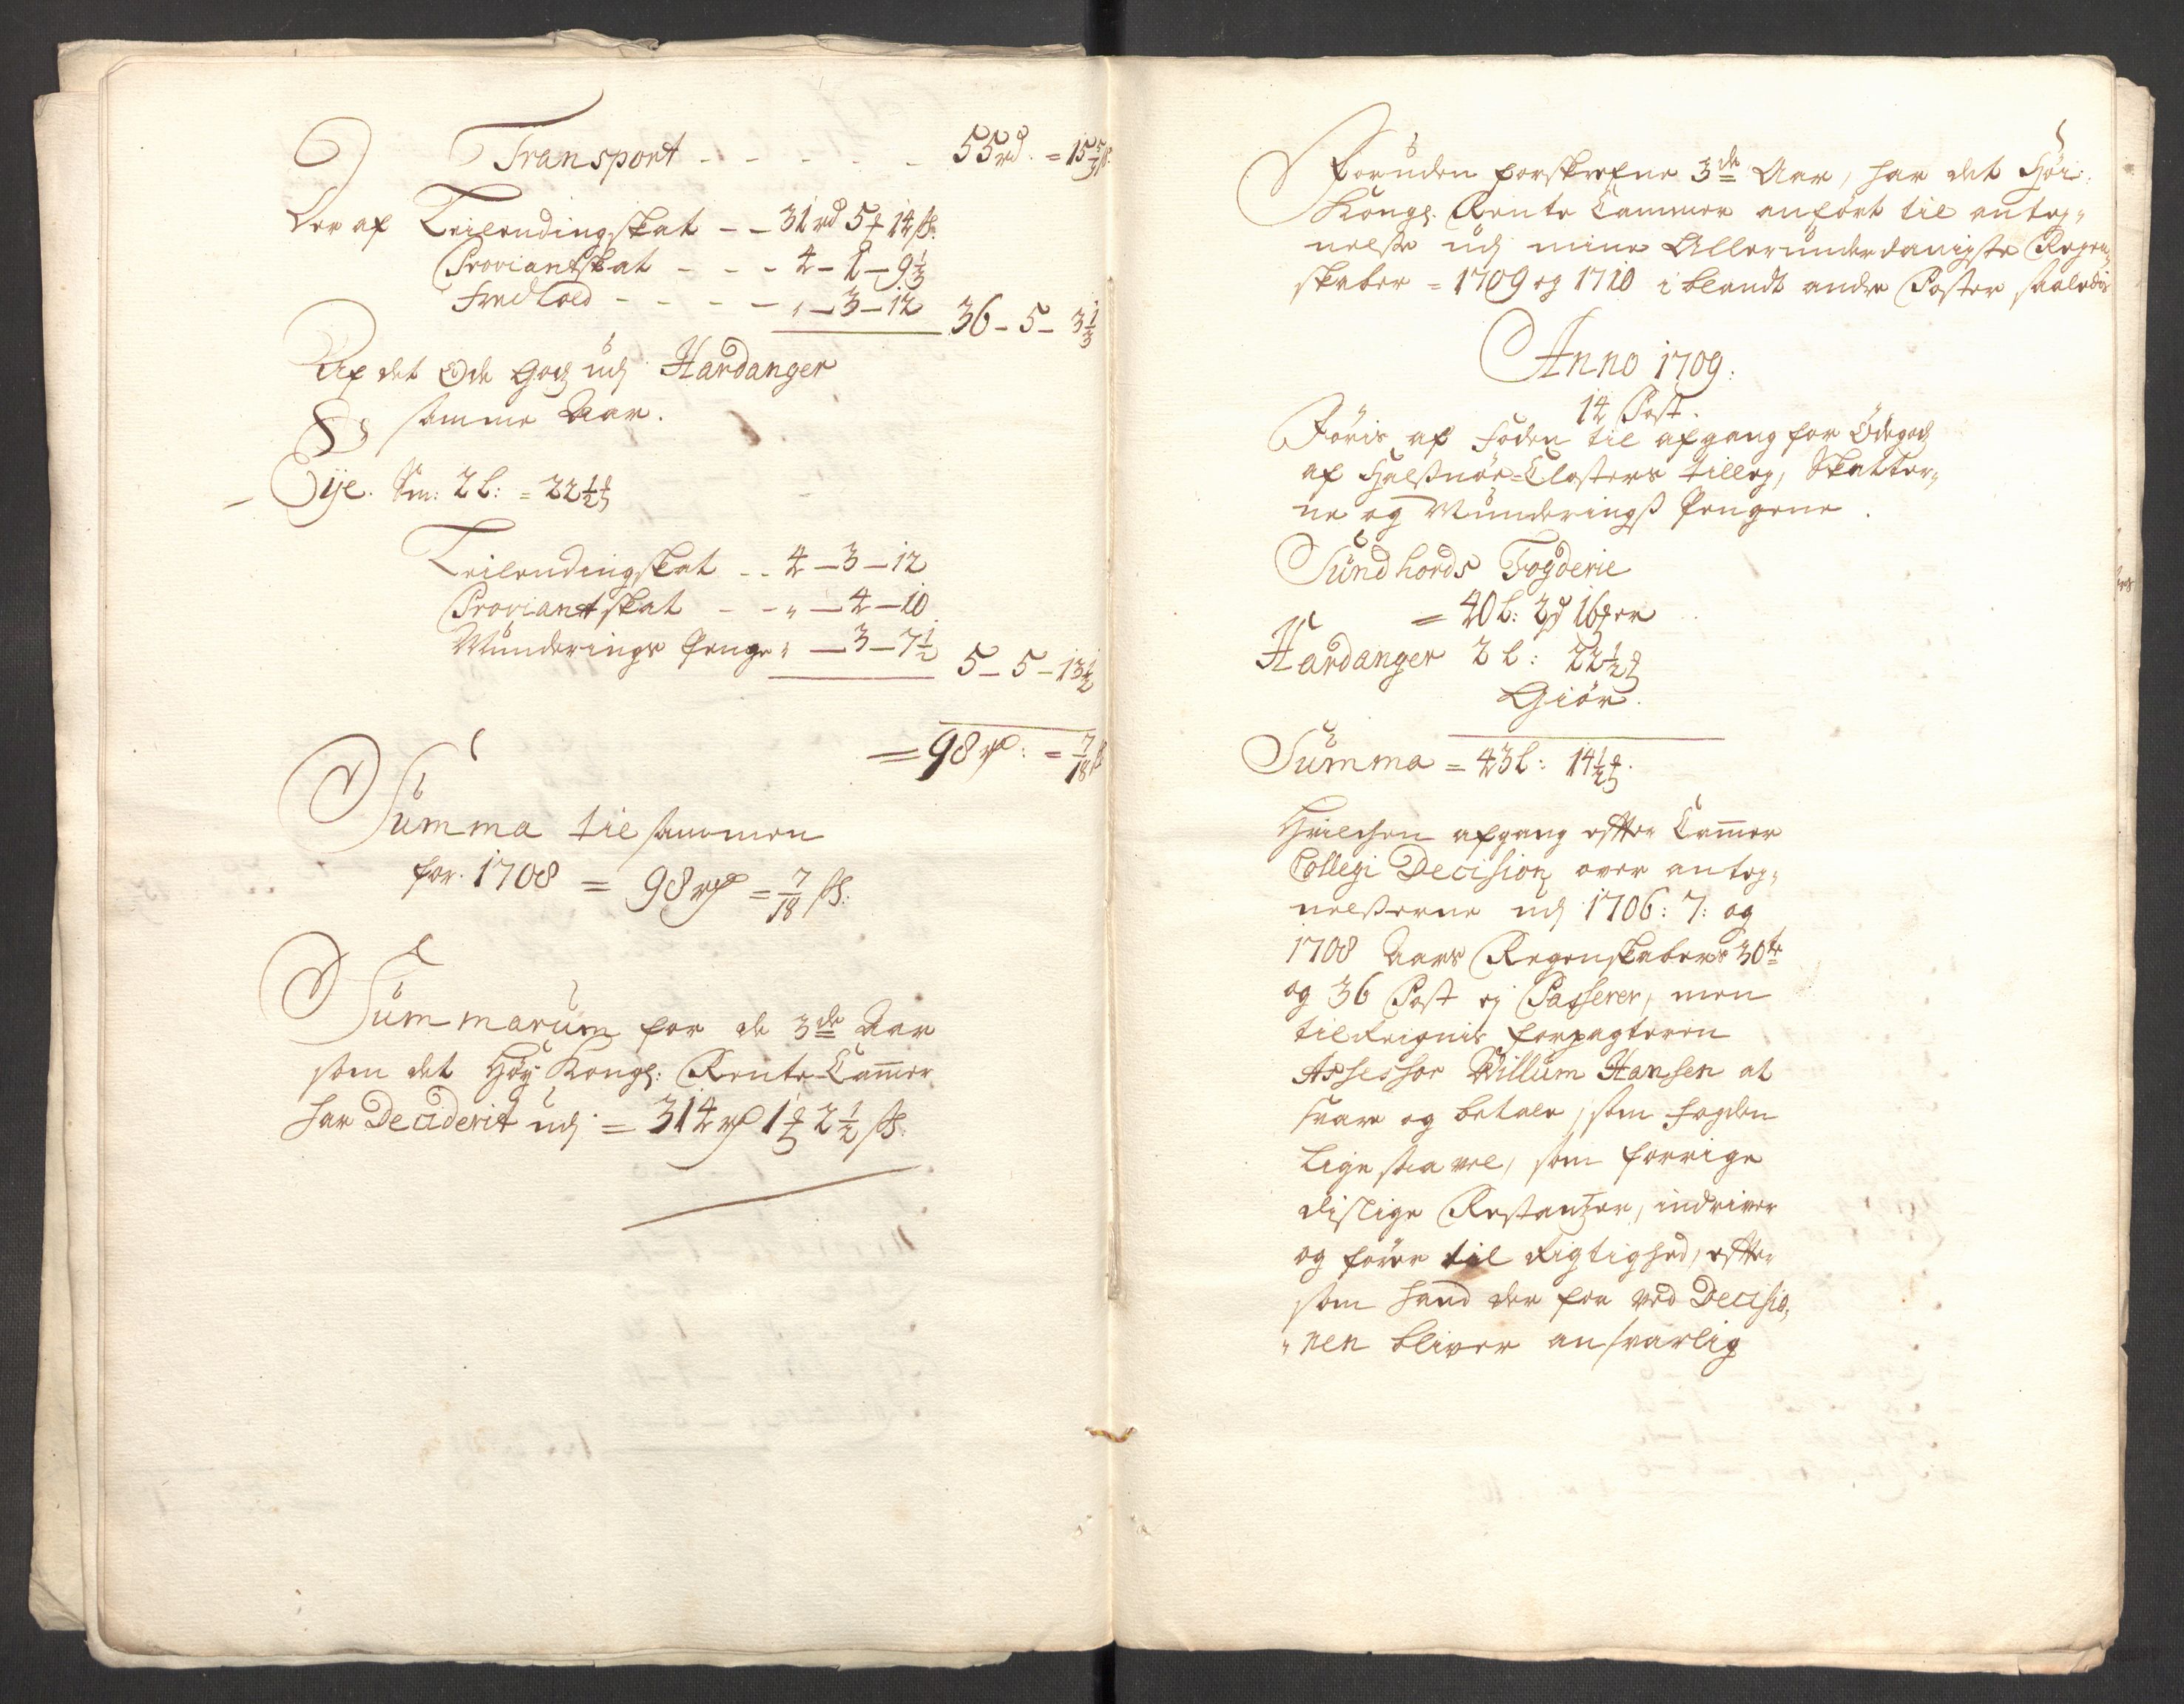 Transport - - - - - 55 rd. = 15 5/9 ß.
Der af Leilendingskat - - 31 rd 5 ℔ 14 ß.
Proviantskat - - - 4 - 1 - 9 1/3
Fredtold - - - - " - 3 - 12 36 - 5 - 3 1/3
Af det Øde Godz udj Hardanger
samme Aar.
Eije. Sm: 2 l: = 22 1/2 ℔
Leilendingskat - - 4 - 3 - 12
Proviantskat - - " - 4 - 10
Munderings Penge " - 3 - 7 1/2 5 - 5 - 13 1/2
= 98 rd: = 7/18 ß
Summa tilsammen
for 1708 = 98 rd = 7/18 ß.
Summarum for de 3de Aar
som det Høy Kongl: Rente-Cammer
har Deciderit udj = 314 rd 1 ℔ 2 1/2 ß.
Foruden forskrefne 3de Aar, har det Høi
Kongl. Rente Cammer anført til anteg-
nelse udj mine Allerunderdanigste Regen-
skaber = 1709 og 1710 i blandt andre Poster saaledis
Anno 1709.
14 Post.
Føris af Foden til afgang for Ødegodz
af Halsnøe-Closters tilleg, Skatter-
ne og Munderings Pengene.
Sundhords Fogderie
= 40 l: 2 16
Hardanger 2 l: 22 1/2 ℔
Giør.
Summa = 43 l: 14 1/2 ℔.
Hvilchen afgang efter Cammer
Collegi Decision over anteg-
nelserne udj 1706: 7: og
1708 Aars Regenskabers 30te
og 36 Post ej Passerer, men
tilkeignis forpagteren
Assessor Willum Hansen at
svare og betale, som fogden
ligesaa vel, som forrige
dislige Restantzer, indriver
og fører til Rigtighed, efter
som hand der for ved Decisio-
nen bliver ansvarlig